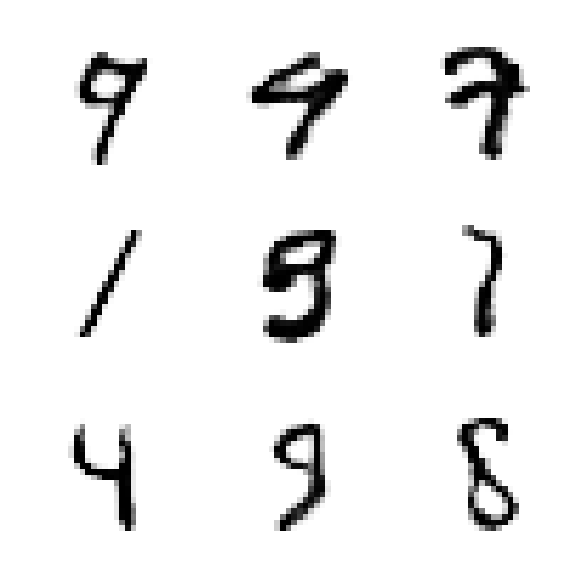 9 9 7
1 9 7
4 9 8